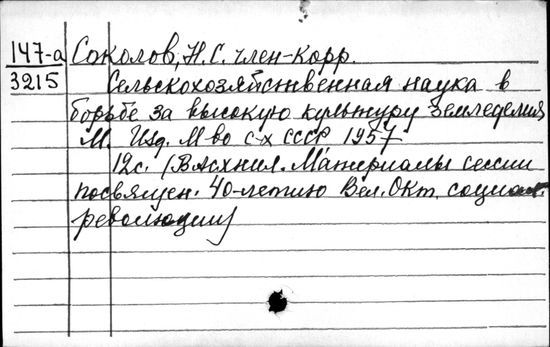 147-а Соколов, Н.С. член-корр.
3215 Сельскохозяйственная наука в
борьбе за высокую культуру земледелия
М. Изд. М во с-х СССР 1957
12с. (ВАСХНИЛ. Материалы сессии
посвящен. 40-летию Вел. Окт. социал.
революции)